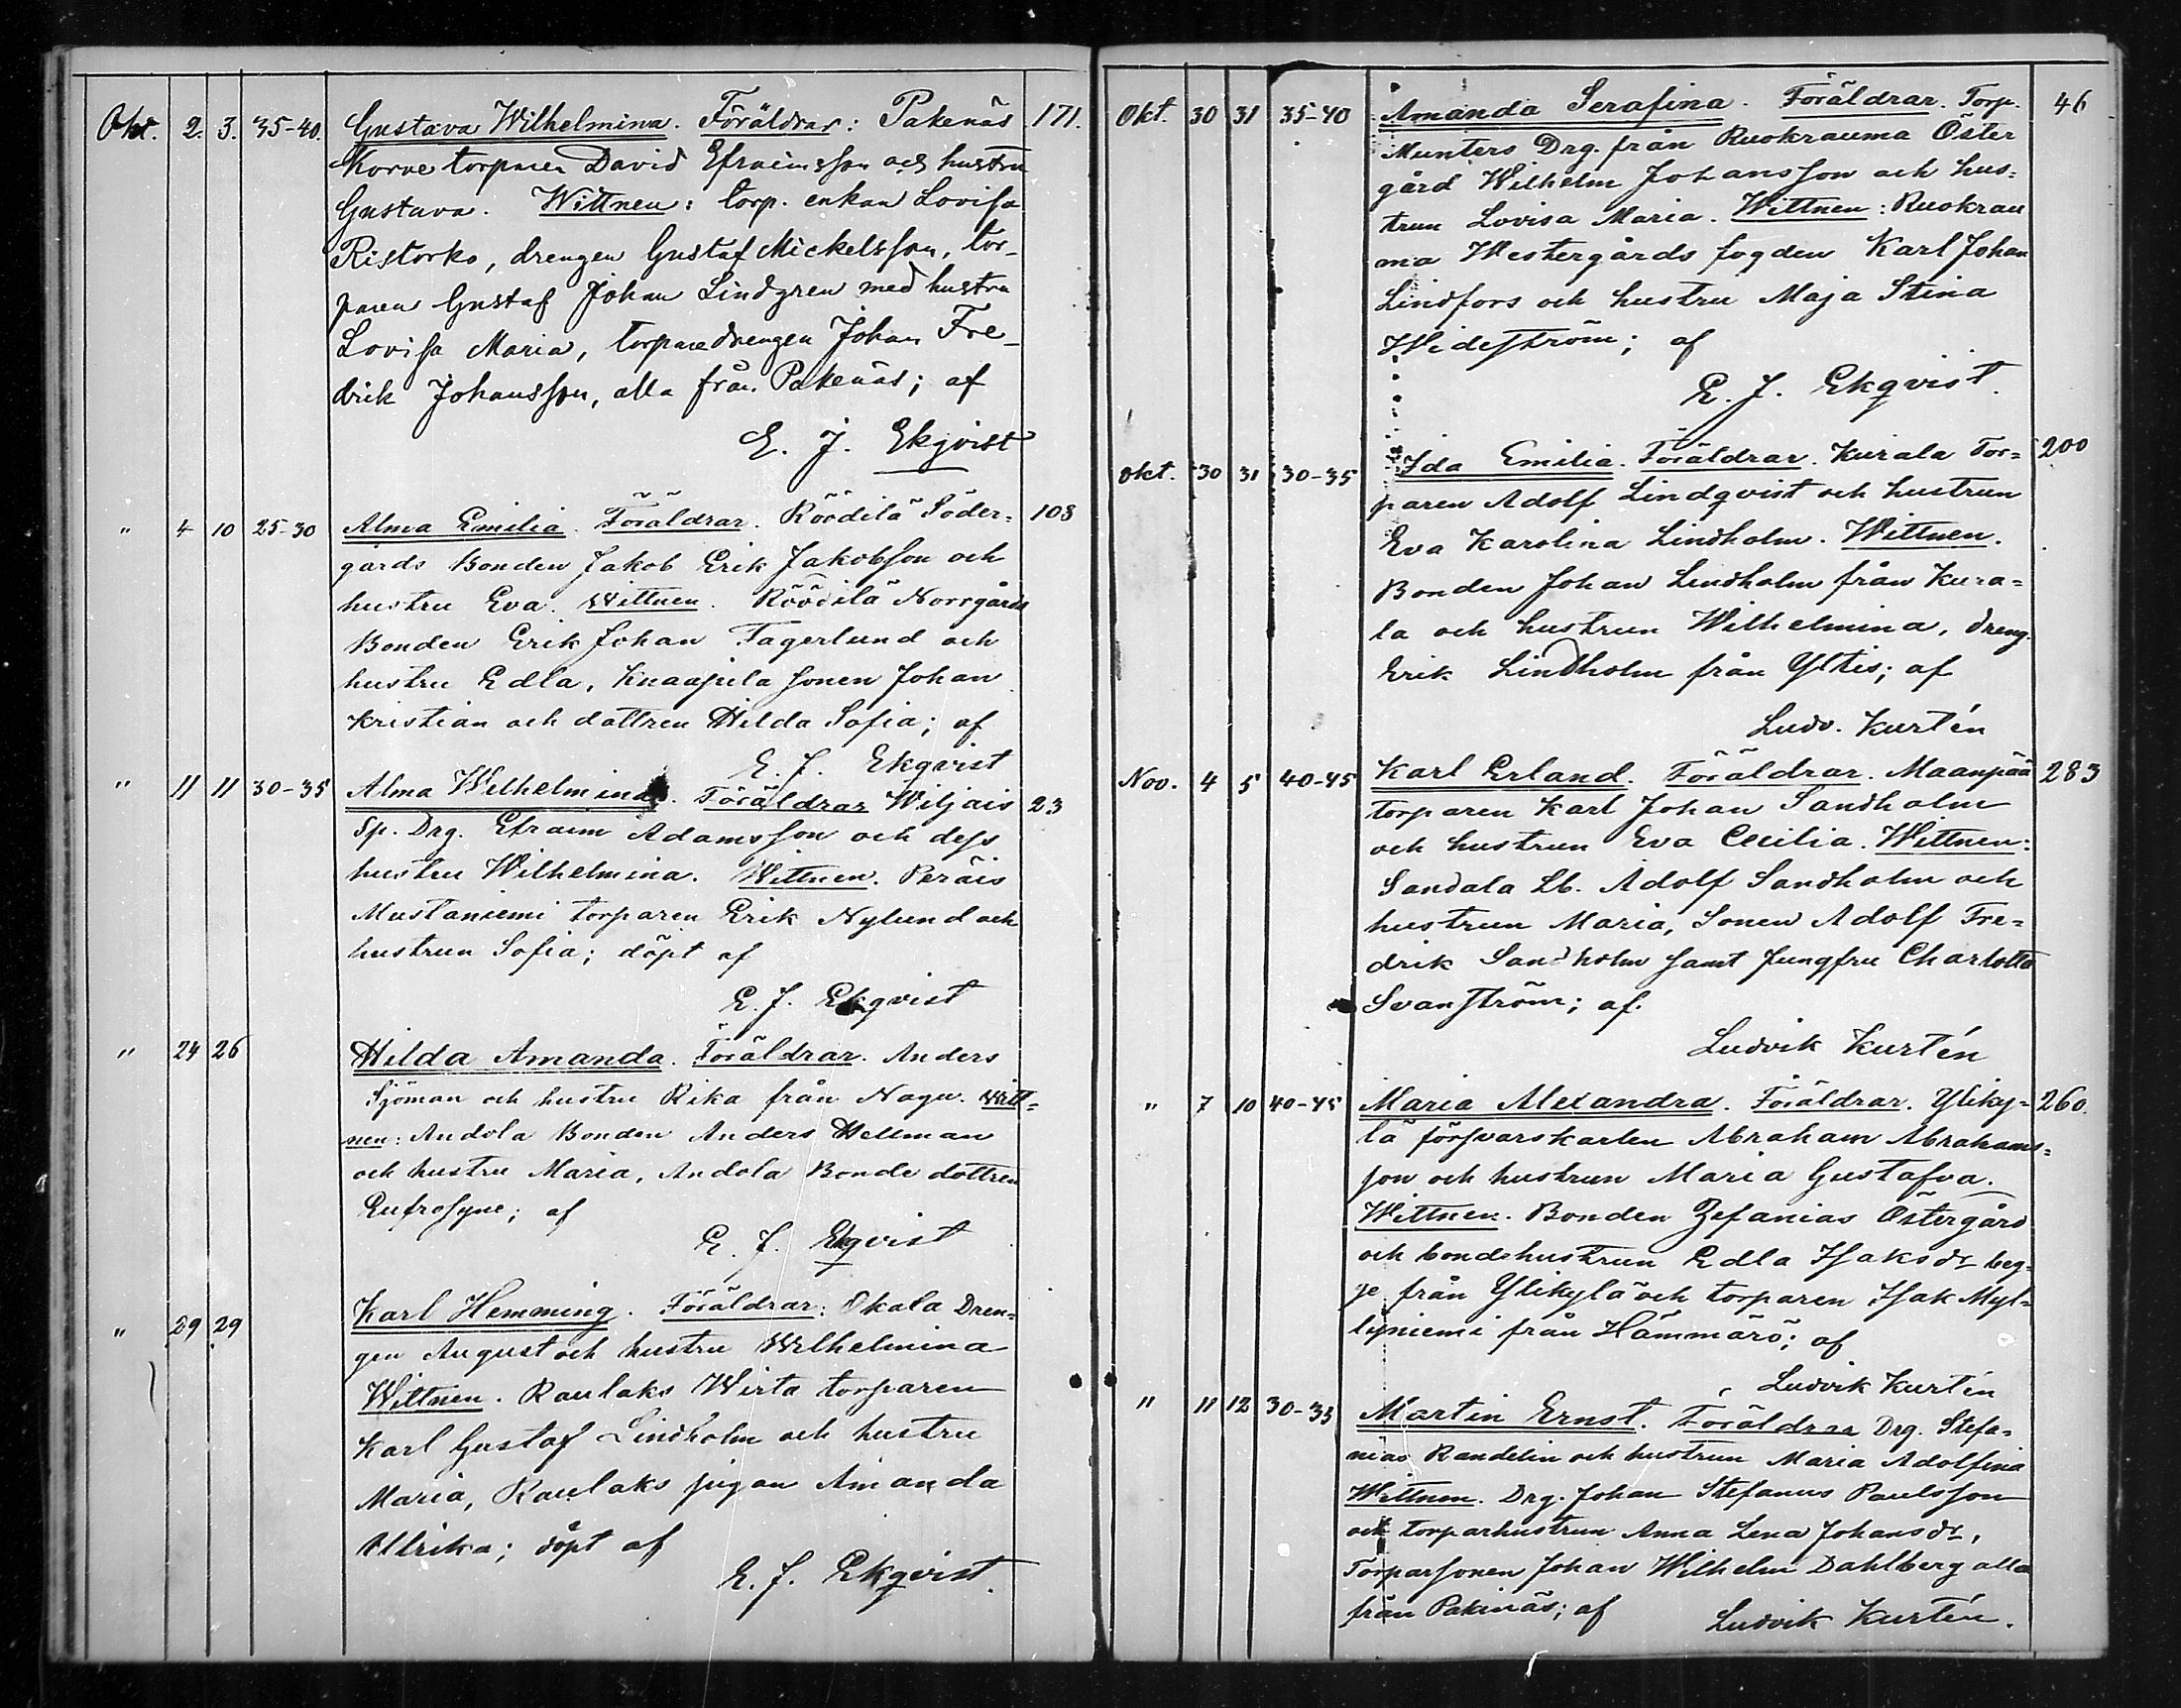 Okt. 2. 3. 35-40. Gustava Wilhelmina. Föräldrar: Pakenäs 171.
Korve torparen David Efraimsson och hustru
Gustava. Wittnen: torp. enkan Lovisa
Ristorko, drengen Gustaf Mickelsson, tor-
paren Gustaf Johan Lindgren med hustru
Lovisa Maria, torparedrengen Johan Fre-
drik Johansson, alla från Pakenäs; af
E. J. Ekqvist
" 4 10 25-30 Alma Emilia. Föräldrar. Röödilä Söder= 108
gårds Bonden Jakob Erik Jakobson och
hustru Eva. Wittnen. Röödilä Norrgårds
Bonden Erik Johan Fagerlund och
hustru Edla, Knaapila sonen Johan
Kristian och dottren Hilda Sofia; af
E. J. Ekqvist
" 11 11 30-35 Alma Wilhelmina. Föräldrar Wiljais 23
Sp. Drg. Efraim Adamsson och dess
hustru Wilhelmina. Wittnen. Peräis
Mustaniemi torparen Erik Nylund och
hustrun Sofia; döpt af
E. J. Ekqvist
" 24 26 Hilda Amanda. Föräldrar. Anders
Sjöman och hustru Rika från Nagu. Witt=
nen: Andola Bonden Anders Hellman
och hustru Maria, Andola Bonde dottren
Eufrosyne; af
E. J. Ekqvist
" 29 29 Karl Hemming. Föräldrar: Okala Dren=
gen August och hustru Wilhelmina
Wittnen. Raulaks Wirta torparen
Karl Gustaf Lindholm och hustru
Maria, Raulaks pigan Amanda
Ulrika; döpt af
E. J. Ekqvist.
Okt. 30 31 35-40 Amanda Serafina. Föräldrar. Torp. 46
Munters Drg. från Ruokrauma Öster
gård Wilhelm Johansson och hus=
trun Lovisa Maria. Wittnen: Ruokrau
ma Westergårds fogden Karl Johan
Lindfors och hustru Maja Stina
Wideström; af
E. J. Ekqvist.
Okt. 30 31 30-35 Ida Emilia. Föräldrar. Kurala Tor= 200
paren Adolf Lindqvist och hustrun
Eva Karolina Lindholm. Wittnen.
Bonden Johan Lindholm från Kura=
la och hustrun Wilhelmina, dreng.
Erik Lindholm från Yltis; af
Ludv. Kurtén
Nov. 4 5 40-45 Karl Erland. Föräldrar. Maanpää 283
torparen Karl Johan Sandholm
och hustrun Eva Cecilia. Wittnen:
Sandala Lb. Adolf Sandholm och
hustrun Maria, Sonen Adolf Fre=
drik Sandholm samt Jungfru Charlotta
Svanström; af.
Ludvik Kurtén
" 7 10 40-45 Maria Alexandra. Föräldrar. Yliky= 260.
lä försvarskarlen Abraham Abrahams=
son och hustrun Maria Gustafva.
Wittnen. Bonden Zefanias Östergård
och bondehustrun Edla Isaksdr beg=
ge från Ylikylä och torparen Isak Myl=
lyniemi från Hämmärö; af
Ludvik Kurtén
" 11 12 30-35 Martin Ernst. Föräldrar Drg. Stefa=
nias Randelin och hustrun Maria Adolfina
Wittnen. Drg. Johan Stefanus Paulsson
och torparhustrun Anna Lena Johansdr,
Torparsonen Johan Wilhelm Dahlberg alla
från Pakinäs; af Ludvik Kurtén.